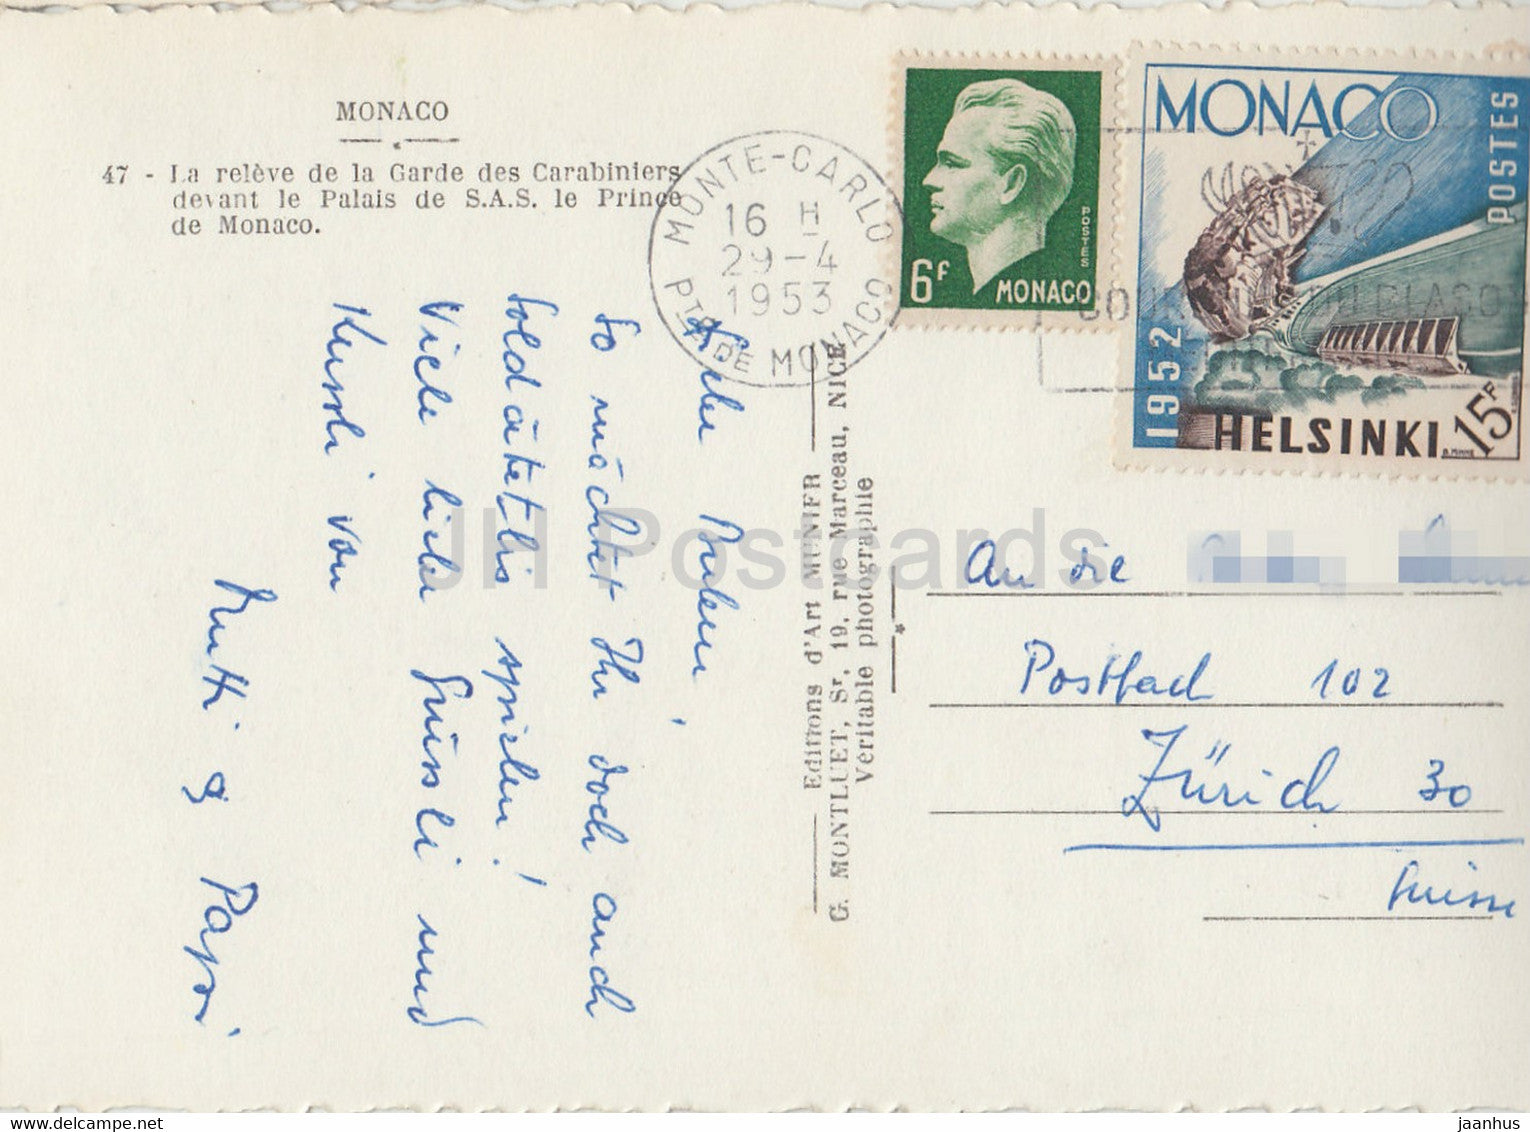 MONACO
47 - La relève de la Garde des Carabiniers
devant le Palais de S.A.S. le Prince
de Monaco.
MONTE-CARLO
16 H
29-4
1953
Pté DE MONACO
6F
POSTES
MONACO
MONACO
POSTES
1952
HELSINKI
15F
Liebe Buben!
So möchtet Ihr doch auch
Soldätetlis spielen!
Viele liebe Grüssli und
Küssli von
Mutti & Pappi
Editions d'Art MUNIER
G. MONTLUET, Sr, 19, rue Marceau, NICE
Véritable photographie
An die
Postfach 102
Zürich 30
Suisse
JH Postcards
jaanhus